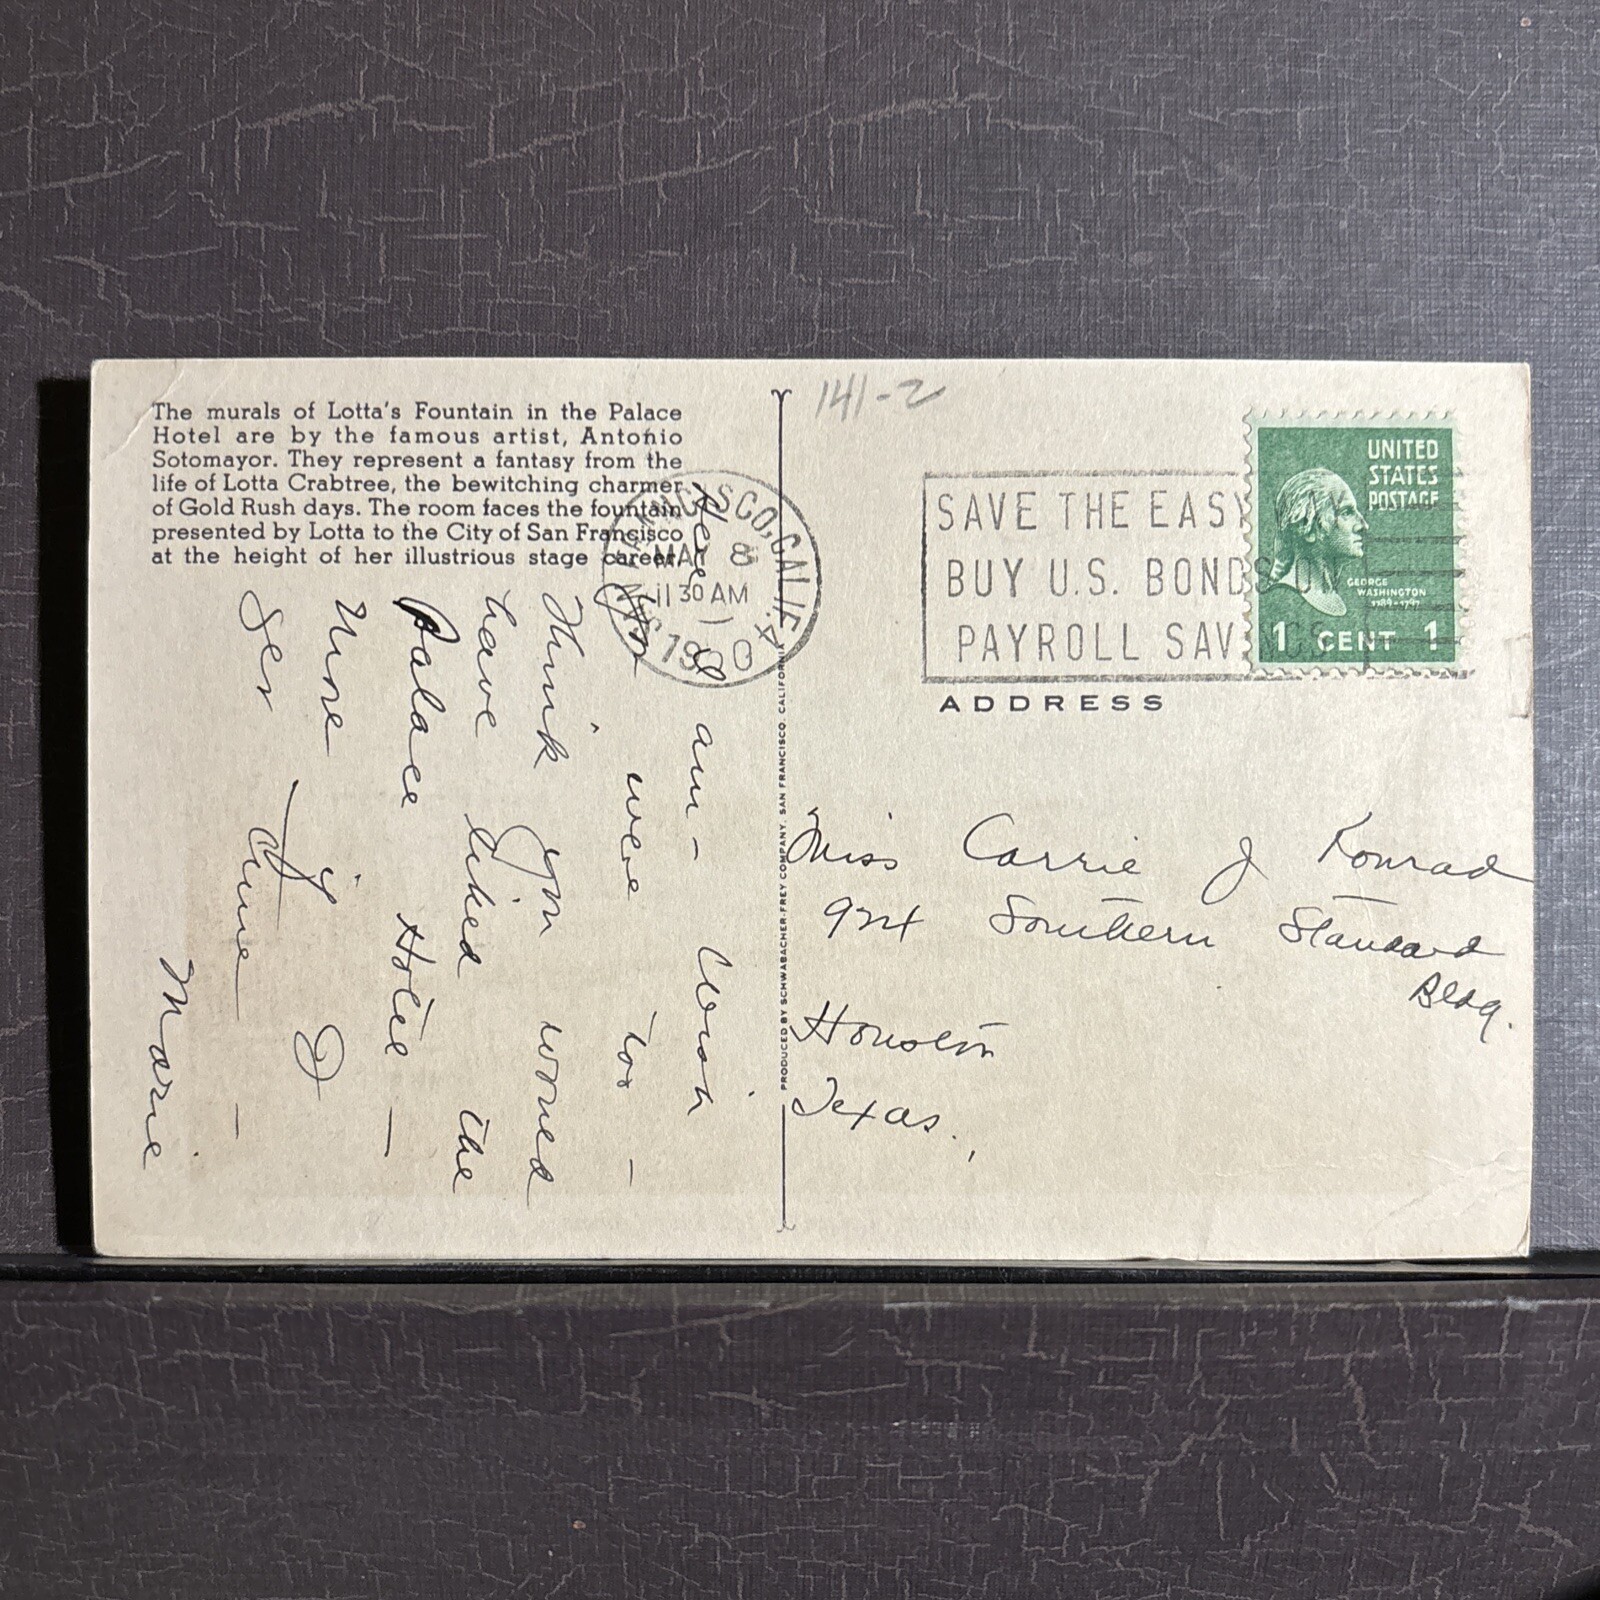 The murals of Lotta's Fountain in the Palace
Hotel are by the famous artist, Antonio
Sotomayor. They represent a fantasy from the
life of Lotta Crabtree, the bewitching charmer
of Gold Rush days. The room faces the fountain
presented by Lotta to the City of San Francisco
at the height of her illustrious stage career.
Here I am - Wish
you were too -
Think you would
have liked the
Palace Hotel -
More I
See
Marie
PRODUCED BY SCHWABACHER-FREY COMPANY, SAN FRANCISCO, CALIFORNIA
141-2
CISCO, CALIF.
MAY 8
11 30 AM
SAVE THE EASY
BUY U.S. BONDS ON
PAYROLL SAVINGS
UNITED
STATES
POSTAGE
GEORGE
WASHINGTON
1789-1797
1 CENT 1
ADDRESS
Miss Carrie J Konrad
924 Southern Standard
Bldg.
Houston
Texas.